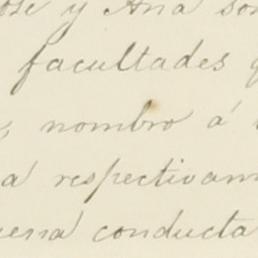 y Ana
facultades
nombro á
a respectivam
conducta